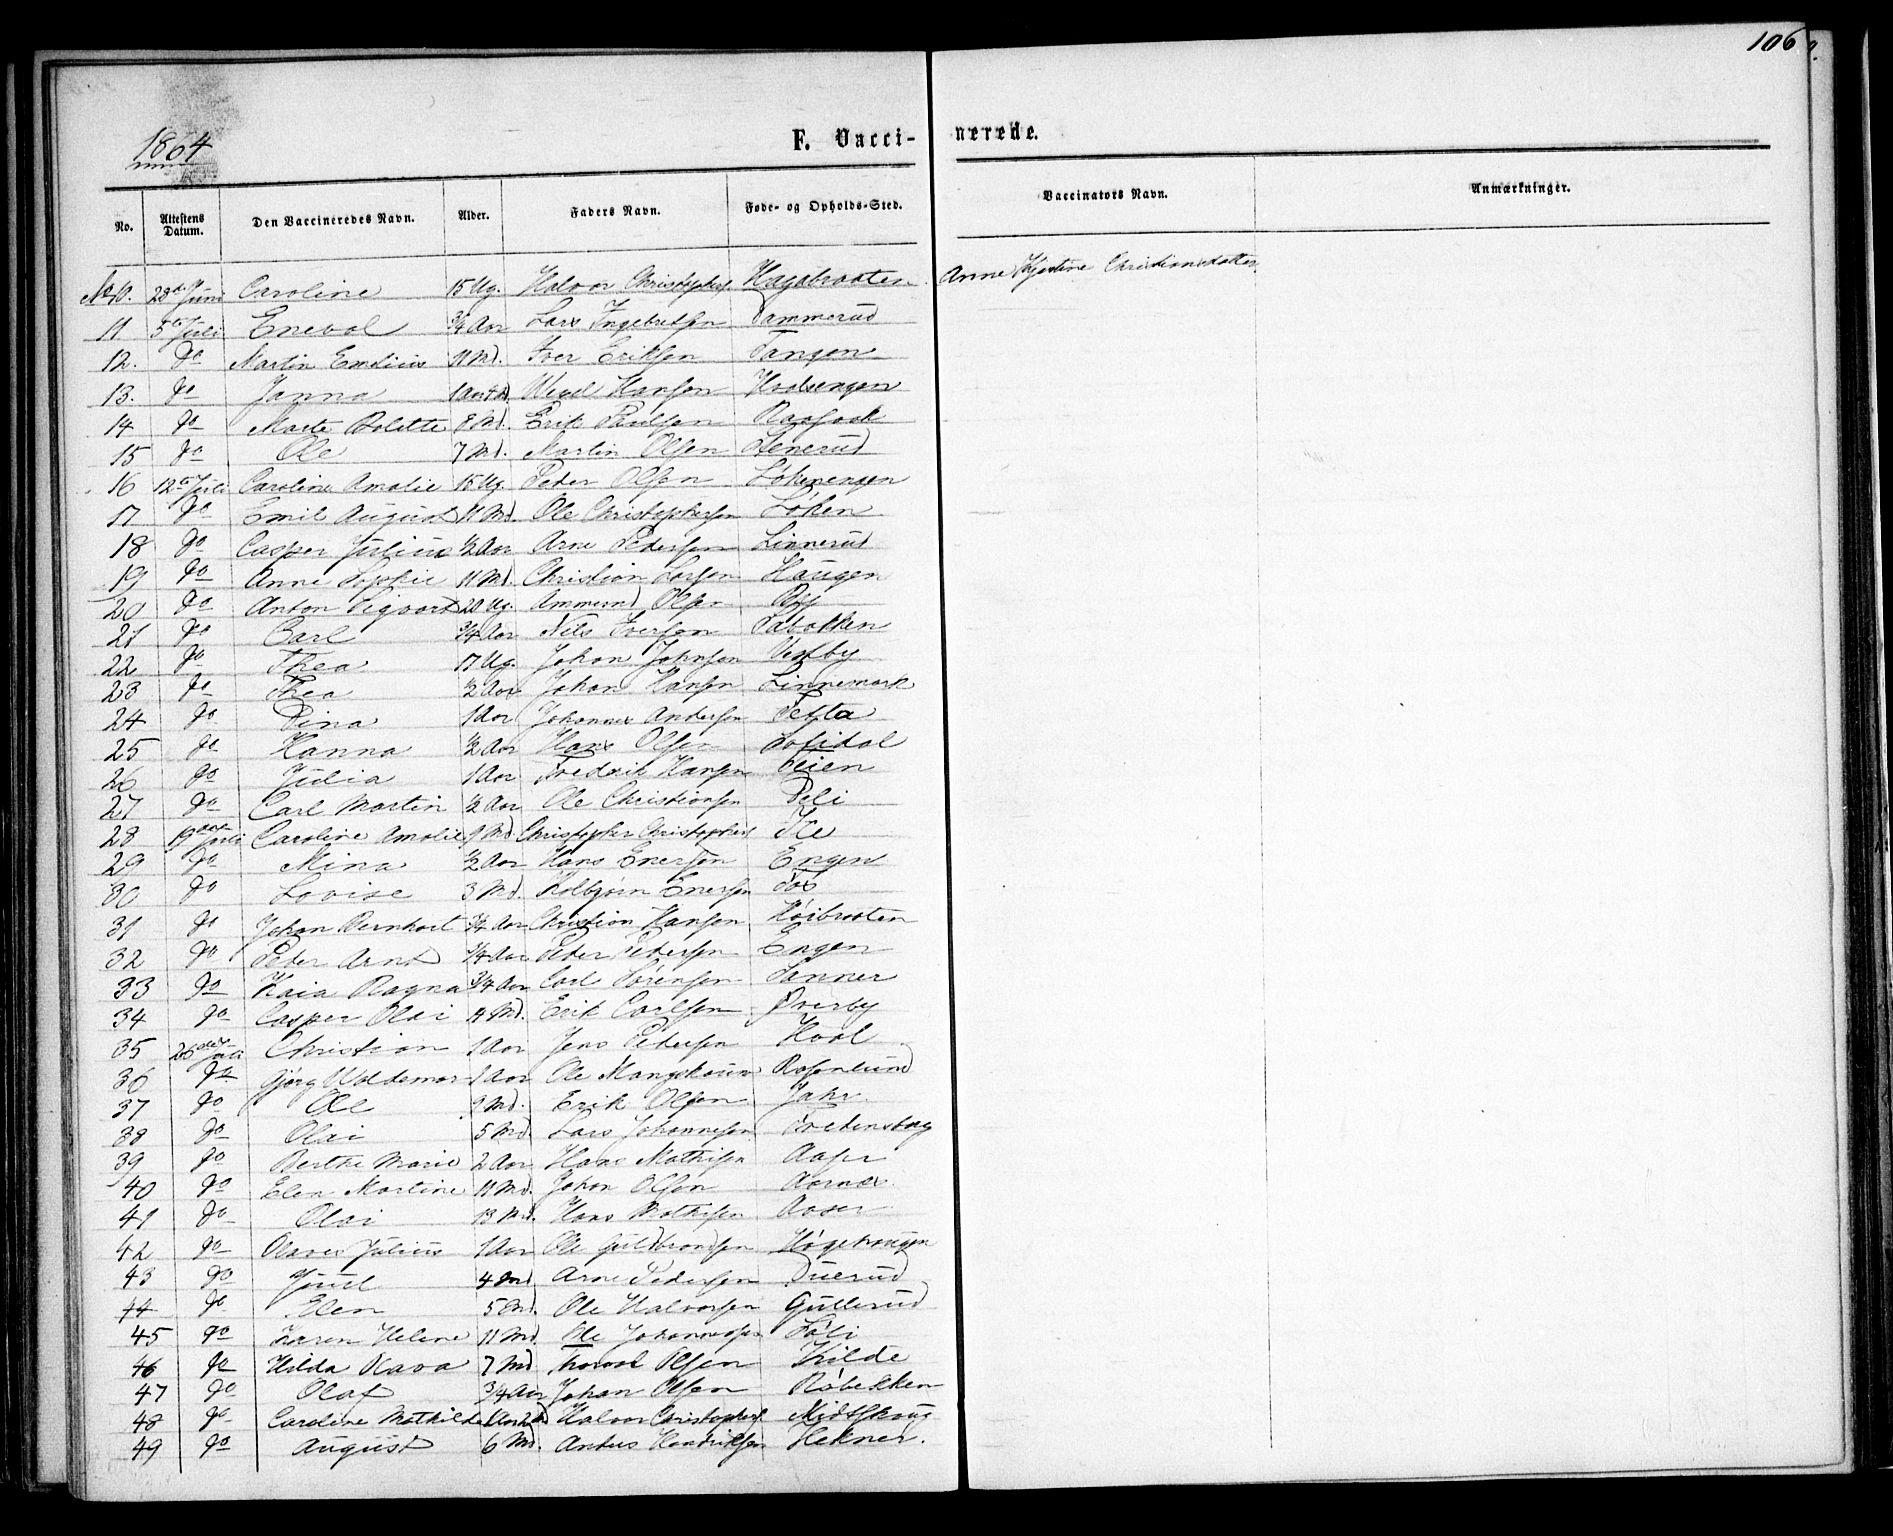 106
1864
F. Vacci- nerede.
No. Attestens Datum. Den Vaccineredes Navn. Alder. Faders Navn. Føde- og Opholds-Sted. Vaccinators Navn. Anmærkninger.
No 10. 28de Juni Caroline 15 Ug. Halvor Christophers. Hagabraaten Anne Kjerstine Christiansdatter
11 5te Juli Enevol 3/4 Aar Lars Ingebretsen Tammerud
12. do Martin Emilius 11 Md. Iver Eriksen Tangen
13. do Janna Hansen
14 do Marte Bolette 8 Md. Erik Paulsen
15 do Ole 7 Md. Martin Olsen
16 12te Juli Caroline Amalie 15 Ug. Peder Olsen Løkenengen
17 do Emil August 11 Md. Ole Christophersen Løken
18 do Casper Julius 1/2 Aar Arne Pedersen Linnerud
19 do Anne Sophie 11 Md. Christian Larsen Haugen
20 do Anton Sigvart 20 Ug. Ammund Olsen By
21 do Carl 3/4 Aar Nils Iversen
22 do Thea 17 Ug. Johan Johnsen Vestby
23 do Thea 1/2 Aar Johan Hansen Linnemark
24 do Dina 1 Aar Johannes Andersen
25 do Hanna 1/2 Aar Hans Olsen
26 do Julia 1 Aar Fredrik Hansen
27 do Carl Martin 1/2 Aar Ole Christiansen
28 19de Juli Caroline Amalie 9 Md Christopher Christophers.
29 do Mina 1/2 Aar Hans Enersen Engen
30 do Lovise 3 Md. Kolbjørn Enersen
31 do Johan Bernhart 3/4 Aar Christian Hansen Høibraaten
32 do Peter Arnt 1/4 Aar Peder Pedersen Engen
33 do Kaia Ragna 3/4 Aar Carl Sørensen Sanner
34 do Casper Olai 4 Md. Erik Carlsen Øverby
35 26de Juli Christian 1 Aar Jens Pedersen Hval
36 do Gjørg Woldemar 1 Aar Ole Rosenlund
37 do Ole 9 Md. Erik Olsen Jahr
38 do Olai 5 Md. Lars Johannesen Fredensborg
39 do Berthe Marie 2 Aar Hans Mathisen
40 do Elen Martine 11 Md. Johan Olsen Aarnæs
41 do Olai 13 Md. Hans Mathisen
42 do Olaves Julius 1 Aar Ole Guldbrandsen
43 do Juul 4 Md Arne Pedersen
44 do Elen 5 Md. Ole Halvorsen Gullerud
45 do Karen Helene 11 Md. Ole Johannesen
46 do Hilda Olava 7 Md Olsen Kilde
47 do Olaf 3/4 Aar Johan Olsen Røbekken
48 do Caroline Mathilde Halvor Christophers. Midtskoug
49 do August 6 Md. Anders Hendriksen Hekner.